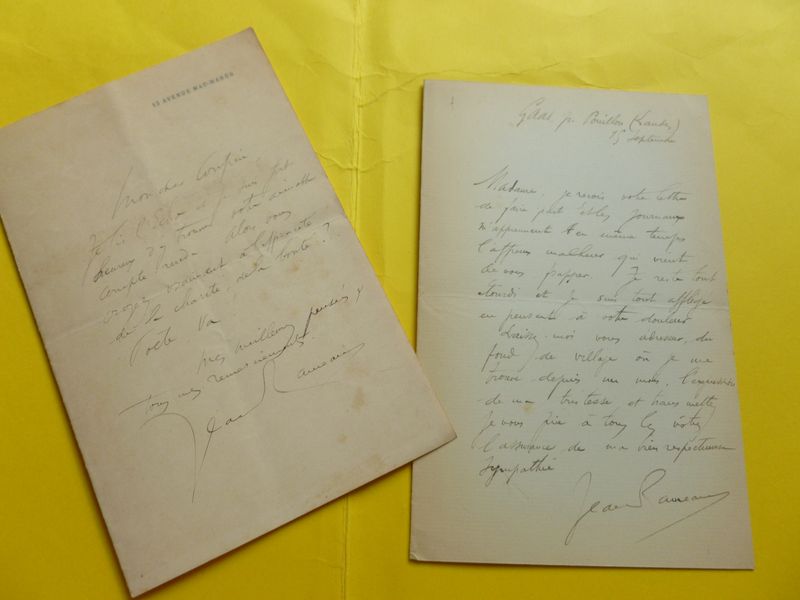 13 AVENUE MAC-MAHON
Mon cher Confrère
Je lis l'Echo et je suis fort
heureux d'y trouver votre aimable
compte rendu. Alors vous
croyez vraiment à l'efficacité
de la charité, de la bonté ?
Poète, va !
mes meilleures pensées &
tous mes remerciements
Jean Rameau
Gaas pr Pouillon (Landes)
15 Septembre
Madame, je reçois votre lettre
de faire part et les journaux
m'apprennent en même temps
l'affreux malheur qui vient
de vous frapper. Je reste tout
étourdi et je suis tout affligé
en pensant à votre douleur
Laissez-moi vous adresser, du
fond de village où je me
trouve depuis un mois, l'expression
de ma tristesse et
je vous prie à tous les vôtres
l'assurance de ma bien respectueuse
sympathie
Jean Rameau